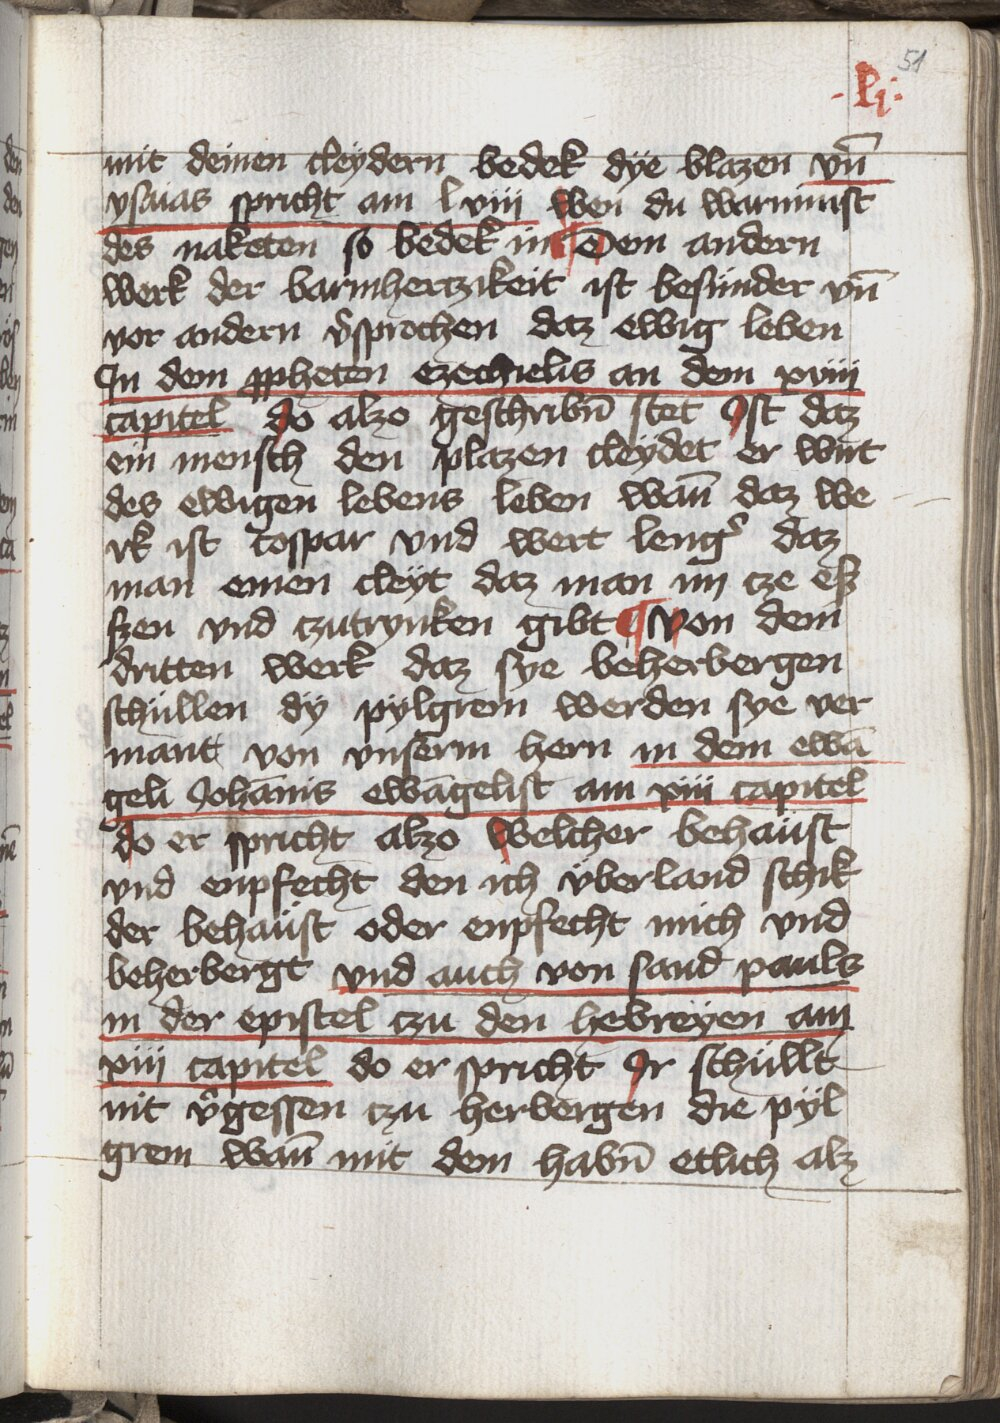 51
·li·
mit deinen cleydern bedek dÿe blazen vn̄
ysaias spricht am lviii wen du warnimst
des naketen so bedek in ¶ Dem andern
werk der barmhertzikeit ist besunder vn̄
vor andern v̓sprochen daz ewig leben
In dem ꝓpheten ezechielis an dem xviii
capitel do alzo geschribn̄ stet Ist daz
ein mensch den plazen cleydet er wirt
des ewigen lebens leben wan̄ daz we
rk ist cospar vnd wert leng᷑ daz
man einen cleyt daz man im cze esz
szen vnd czutrynken gibt ¶ Von dem
dritten werk daz sye beherbergen
schullen dÿ pylgrem werden sye ver
mant von vnserm hern in dem ewā
geli Johānis ewāgelist am xiii capitel
do er spricht alzo welcher behaüst
vnd enpfecht den ich vberland schik
der behaüst oder enpfecht mich vnd
beherbergt vnd auch von sand pauls
in der epistel czu den hebreÿen am
xiii capitel do er spricht Ir schullt
nit v̓gessen czu herbergen die pyl
grem wan̄ mit dem habn̄ etlich alz